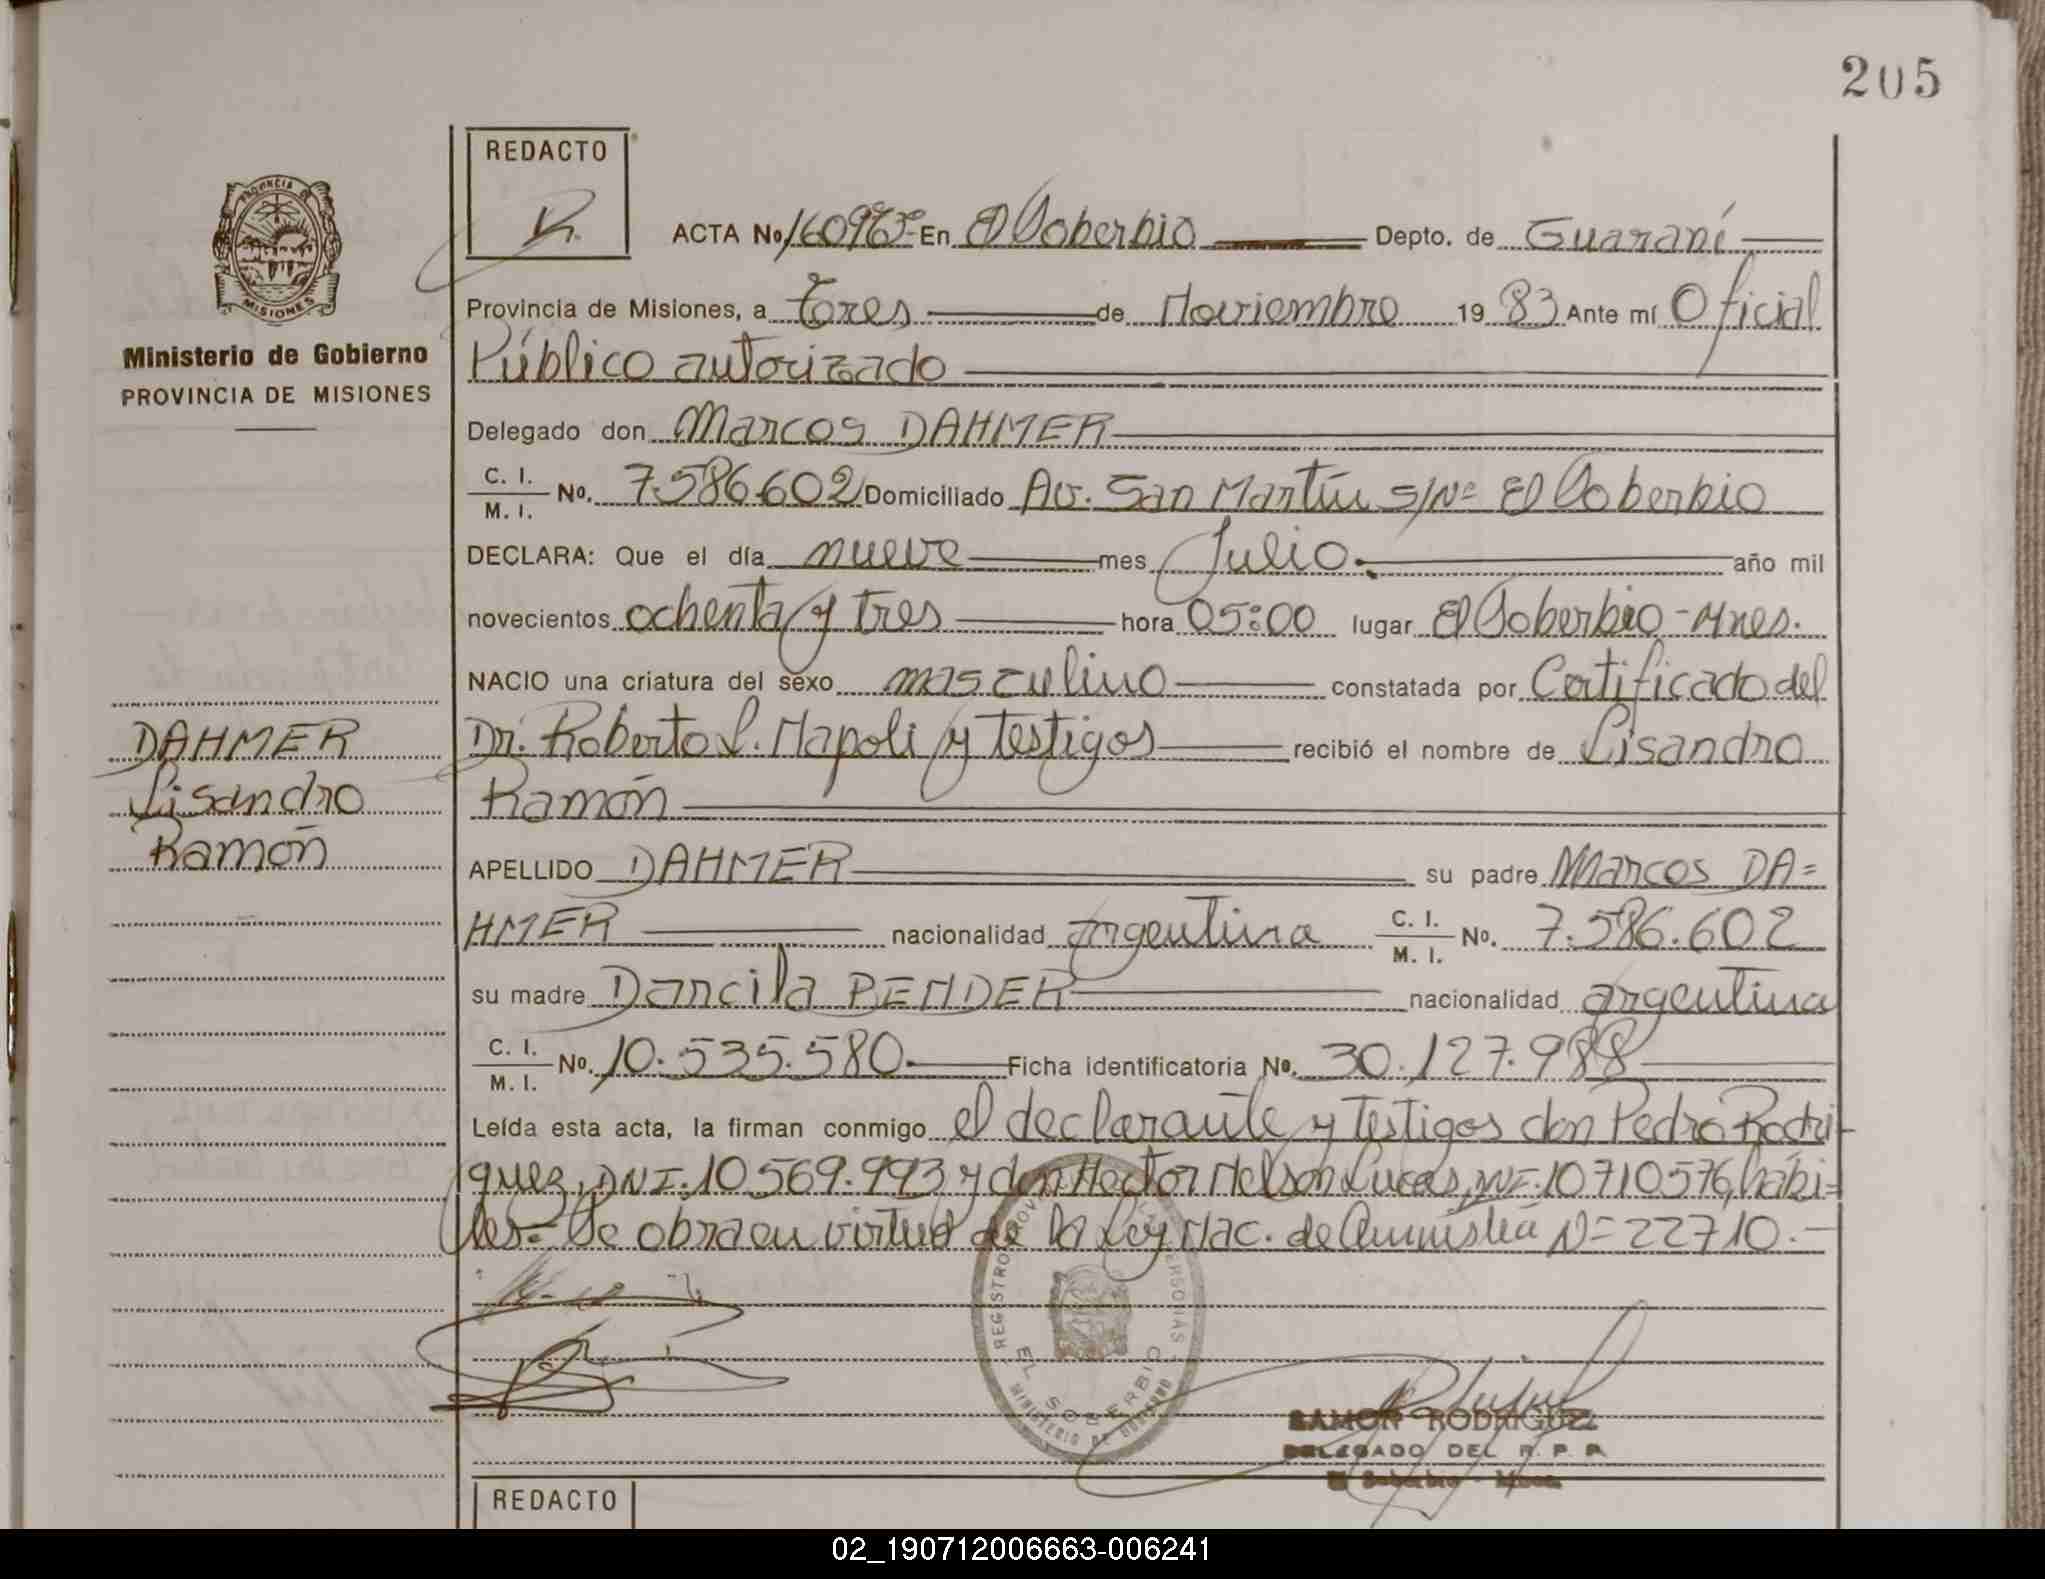 205
REDACTO
ACTA No. En El Soberbio Depto. de Guaraní
Provincia de Misiones, a tres de Noviembre 19 83 Ante mí Oficial
Público autorizado
PROVINCIA DE
MISIONES
Ministerio de Gobierno
PROVINCIA DE MISIONES
Delegado don Marcos DAHMER
C. I.
M. I.
No. 7.586.602 Domiciliado Av. San Martín S/Nº El Soberbio
DECLARA: Que el día nueve mes Julio.- año mil
novecientos ochenta y tres hora 05:00 lugar El Soberbio-Mnes.
NACIO una criatura del sexo masculino constatada por Certificado del
Dr. Roberto L. Napoli y testigos recibió el nombre de Lisandro
Ramón
DAHMER
Lisandro
Ramón
APELLIDO DAHMER su padre Marcos DA=
HMER nacionalidad argentina C. I. M. I. No. 7.586.602
su madre Darcila BENDER nacionalidad argentina
C. I.
M. I.
No. 10.535.580.- Ficha identificatoria No. 30.127.988
Leída esta acta, la firman conmigo el declarante y testigos don Pedro Rodri-
guez, DNI. 10.569.993 y don Hector Nelson Lucas, DNI. 10710576, hábi=
les.- Se obra en virtud de la Ley Nac. de Amnistía Nº 22710.-
REGISTRO PROV. DE LAS PERSONAS
EL SOBERBIO
MINISTERIO DE GOBIERNO
RAMON RODRIGUEZ
DELEGADO DEL R. P. P.
El Soberbio - Mnes.
REDACTO
02_190712006663-006241